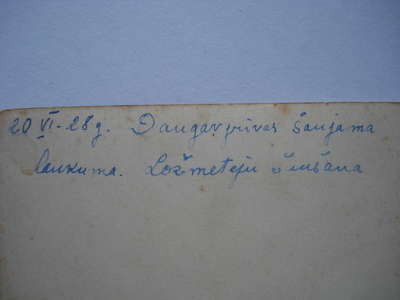 20 VI-28 g. Daugavgrīvas šaujama
laukuma. Ložmetēju šaušana